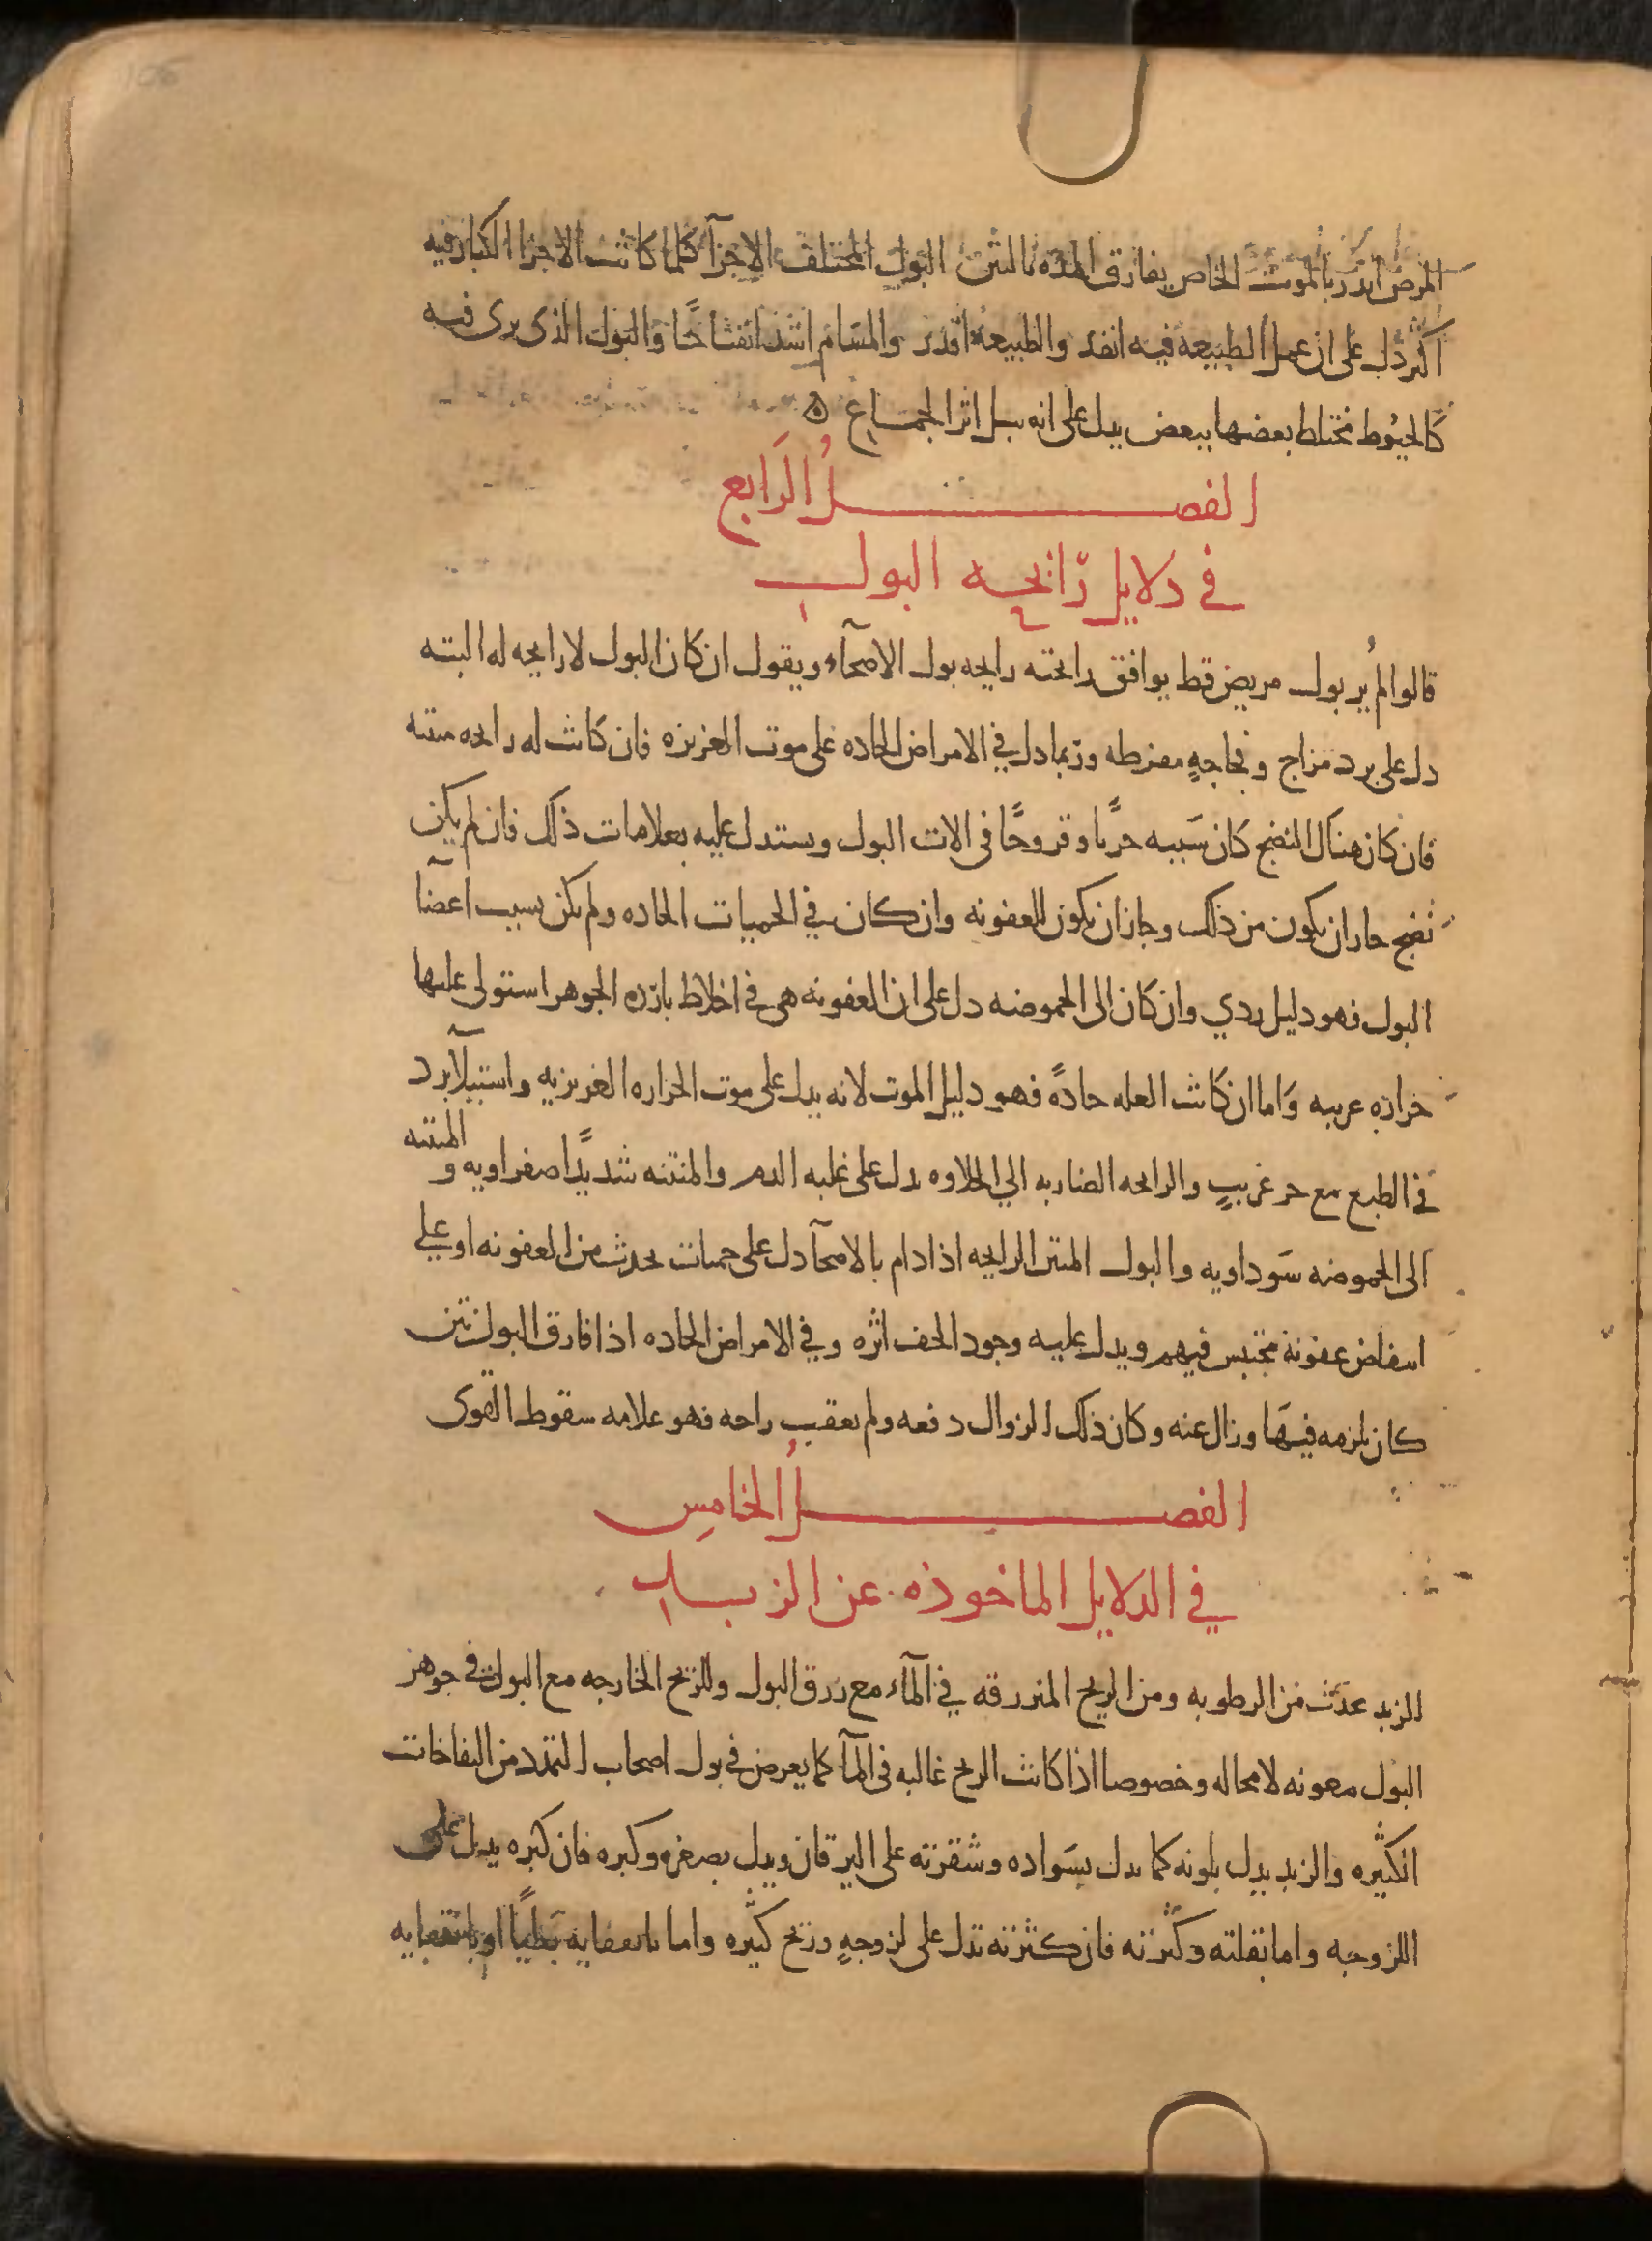 المرض انذر بالموت الخاص يفارق المده بالنتن البول المختلف الاجزآ كلما كانت الاجزا الكبار فيه
اكثر دل على ان عمل الطبيعه فيه انفذ والطبيعه اقدر والمسام اشد انفتاحًا والبول الذى يرى فيه
كالخيوط مختلط بعضها ببعض يدل على انه بيل اثر الجماع
الفصل الرابع
في دلايل رائحه البول
قالوا لم ير بول مريض قط يوافق رائحته رايحه بول الاصحآء ويقول ان كان البول لا رايحه له البته
دل على برد مزاج وفجاجهٍ مفرطه وربما دل في الامراض الحاده على موت الغريزه فان كانت له رايحه منتنه
فان كان هناك النضج كان سَببه جربا وقروحًا فى الات البول وستدل عليه بعلامات ذلك فان لم يكن
نضج جاز ان يكون من ذلك وجاز ان يكون للعفونه وان كان في الحميات الحاده ولم يكن بسبب اعضآ
البول فهو دليل ردي وان كان الى الحموضه دل على ان العفونه هى في اخلاط بارده الجوهر استولى عليها
حراره غريبه وَاما ان كانت العله حادةً فهو دليل الموت لانه يدل على موت الحراره الغريزيه واستيلآ برد
في الطبع مع حر غريبٍ والرايحه الضاربه الي الحلاوه تدل على غلبه الدم والمنتنه شديدًا صفراويه و المنتنه
الى الحموضه سَوداويه والبول المنتن الرايحه اذا دام بالاصحآ دل على حميات تحدث من العفونه او علي
انتفاض عفونة محتبس فيهم ويدل عليه وجود الخف اثره وفي الامراض الحاده اذا فارق البول نتن
كان يلزمه فيهَا وزال عنه وكان ذلك الزوال دفعه ولم يعقب راحه فهو علامه سقوط القوى
الفصل الخامِس
في الدلايل الماخوذه عن الزبد
الزبد يحدث من الرطوبه ومن الريح المنزرقه في المآء مع زرق البول وللريح الخارجه مع البول في جوهر
البول معونه لا محاله وخصوصا اذا كانت الريح غالبه فى المآ كما يعرض في بول اصحاب التمدد من النفاخات
الكثيره والزبد يدل بلونه كما يدل بسَواده وشقرته على اليرقان ويدل بصغره وكبره فان كبره يدل على
اللزوجه واما بقلته وكثرته فان كثرته تدل على لزوجهٍ وريح كثيره واما ببقايه بَطيًا او بانفقايه